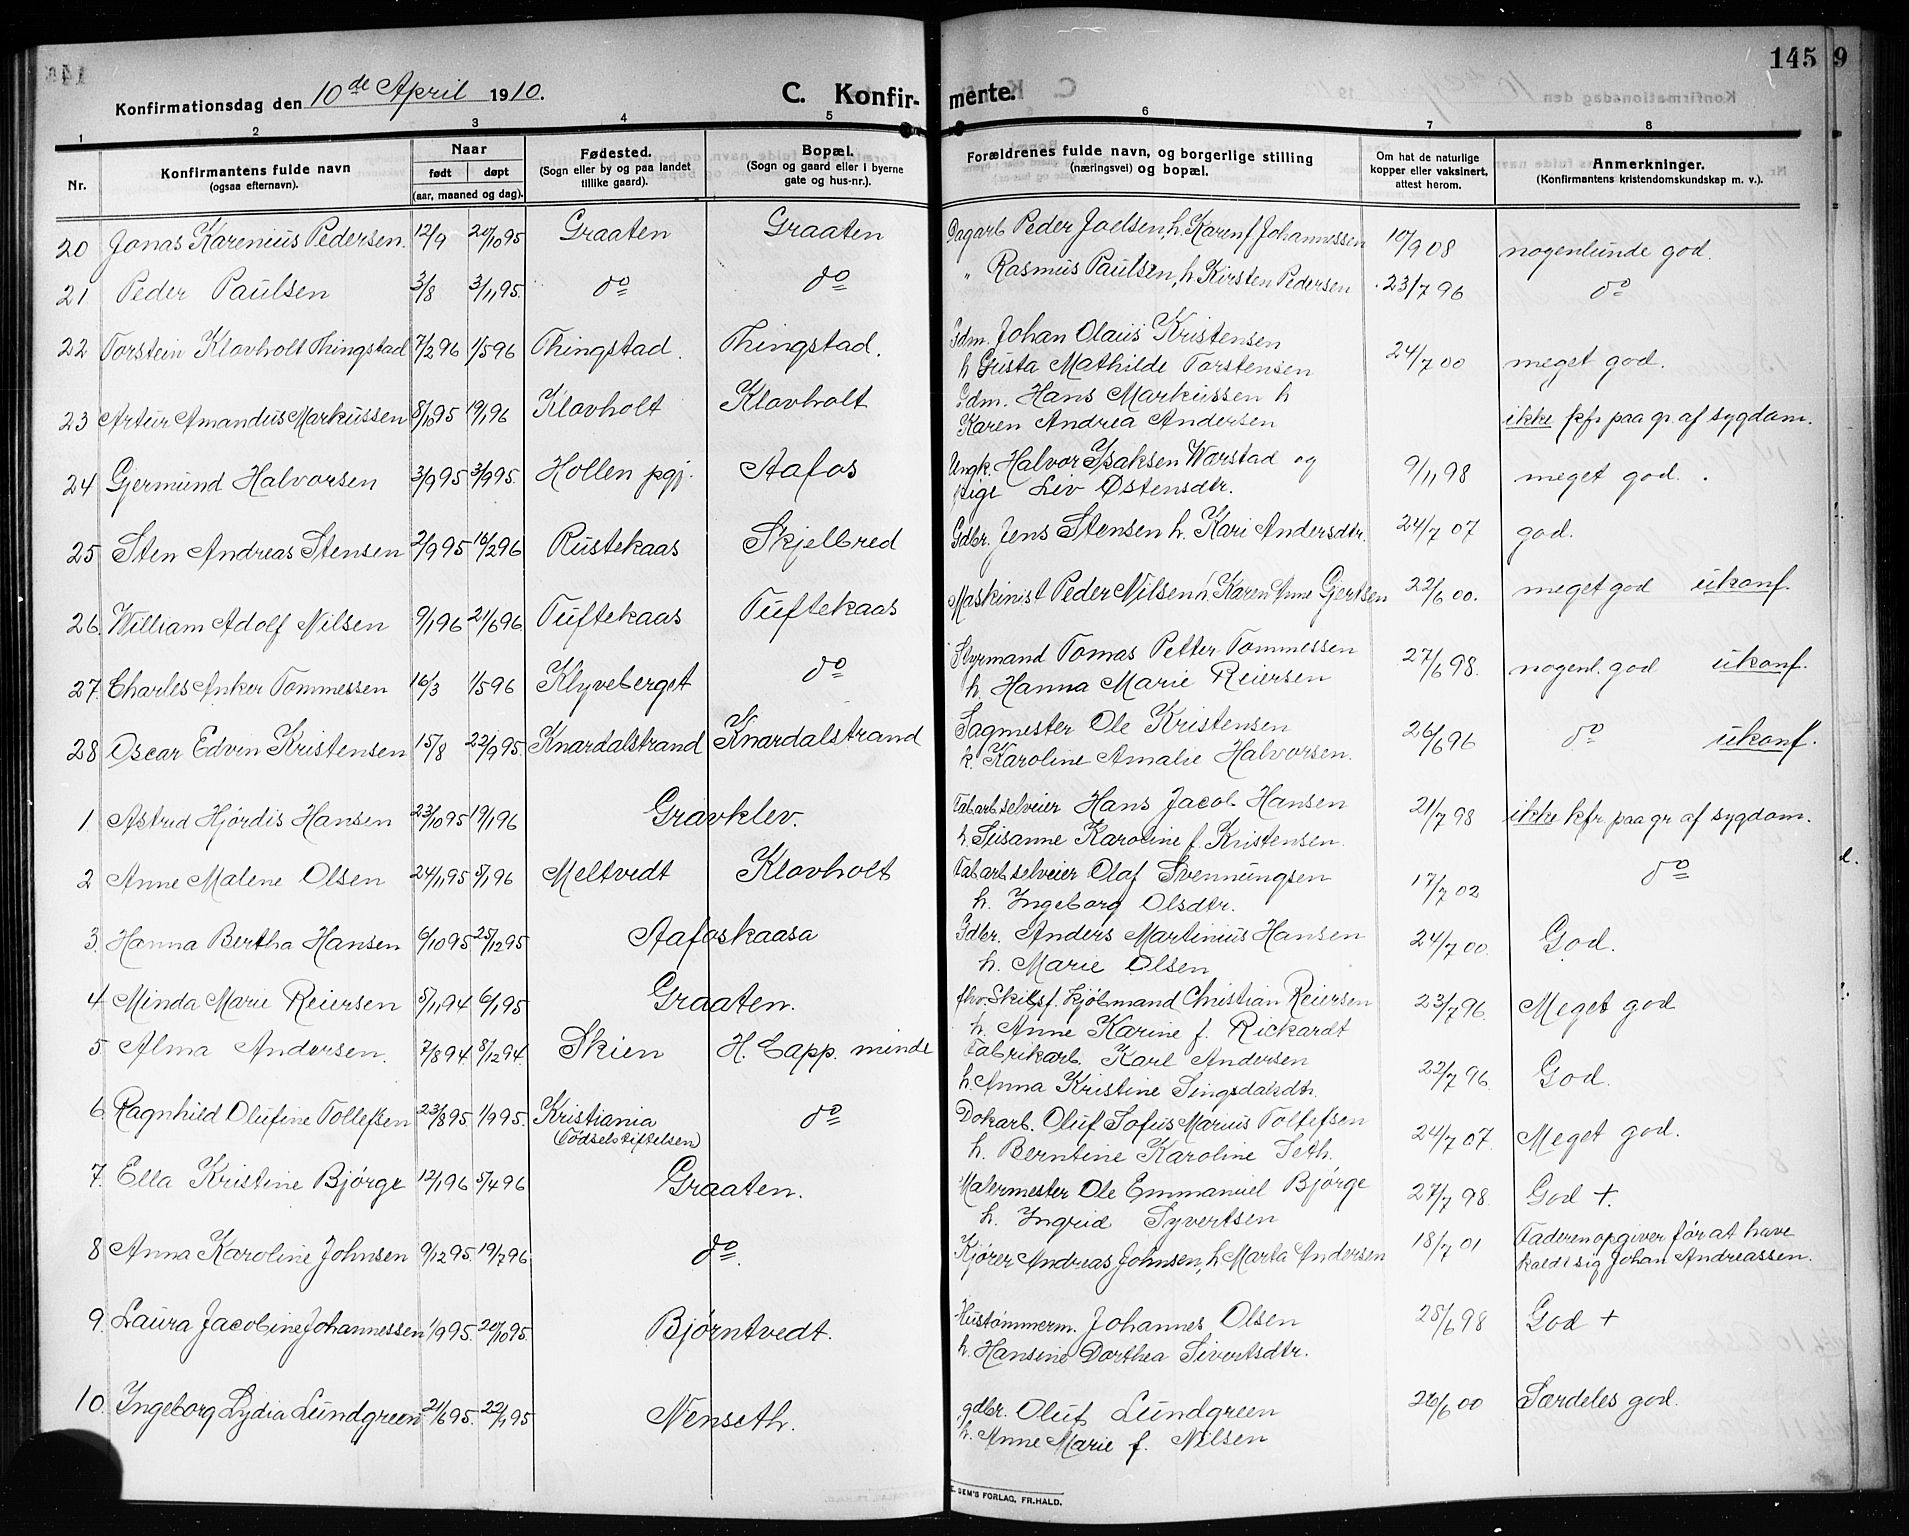 145
9
Konfirmationsdag den 10de April 1910.
C. Konfir- merte.
1 2 3 4 5 6 7 8
Nr.
Konfirmantens fulde navn
(ogsaa efternavn).
Naar
født døpt
(aar, maaned og dag).
Fødested.
(Sogn eller by og paa landet
tillike gaard).
Bopæl.
(Sogn og gaard eller i byerne
gate og hus-nr.).
Forældrenes fulde navn, og borgerlige stilling
(næringsvei) og bopæl.
Om hat de naturlige
kopper eller vaksinert,
attest herom.
Anmerkninger.
(Konfirmantens kristendomskundskap m. v.).
20 Jonas Karenius Pedersen. 12/9 20/10 95 Graaten Graaten Dagarb Peder Joelsen, h. Karen f Johannessen 10/9 08 nogenlunde god.
21 Peder Paulsen 3/8 3/11 95. do do " Rasmus Paulsen, h Kirsten Pedersen 23/7 96 do
22 Torstein Klovholt Thingstad 7/2 96 1/5 96 Thingstad. Thingstad. Gdm. Johan Olaus Kristensen
h Gusta Mathilde Torstensen 24/7 00 meget god.
23 Artur Amandus Markussen 8/10 95 19/1 96 Klovholt Klovholt Gdm. Hans Markussen h
Karen Andrea Andersen ikke kfr paa gr. af sygdom.
24 Gjermund Halvorsen 3/9 95 3/9 95. Hollen pgj. Aafos Ungk. Halvor Isaksen Wærstad og
pige Liv Østensdtr. 9/11 98 meget god.
25 Sten Andreas Stensen 2/9 95 16/2 96 Rustekaas Skjelbred Gdbr. Jens Stensen h. Kari Andersdtr. 24/7 07 god.
26. William Adolf Nilsen 9/1 96 21/6 96 Tuftekaas Tuftekaas Maskinist Peder Nilsen h. Karen Anne Gjertsen 22/6 00. meget god ukonf.
27. Charles Anker Tommessen 16/3 1/5 96 Klyveberget do Styrmand Tomas Petter Tommessen
h. Hanna Marie Reiersen 27/6 98. nogenl. god ukonf.
28 Oscar Edvin Kristensen 15/8 22/9 95. Knardalstrand Knardalstrand Sagmester Ole Kristensen
k. Karoline Amalie Halvorsen. 26/6 96 do ukonf.
1 Astrid Hjördis Hansen 23/10 95 19/1 96 Gravklev. Fabarb selveier Hans Jacob Hansen
h. Susanne Karoline f. Kristensen. 21/7 98 ikke kfr. paa gr af sygdom.
2 Anne Malene Olsen 24/11 95 5/1 96 Meltvedt Klovholt Fabarb selveier Olaf Svennungsen
h. Ingeborg Olsdtr. 17/7 02 do
3. Hanna Bertha Hansen 6/10 95 25/12 95 Aafoskaasa Gdbr. Anders Martinius Hansen
h. Marie Olsen 24/7 00. God.
4 Minda Marie Reiersen 5/11 94 6/1 95 Graaten. fhv. Skibsf. kjöbmand Christian Reiersen
h. Anne Karine f. Rickardt 23/7 96. Meget god
5 Alma Andersen. 7/8 94. 8/12 94. Skien H. Capp. minde Fabrikarb. Karl Andersen
h. Anna Kristine Singsdalsdtr. 22/7 96. God.
6. Ragnhild Olufine Tollefsen 23/8 95. 1/9 95. Kristiania
(Födselstiftelsen) do Dokarb. Oluf Sofus Marius Tollefsen
h. Berntine Karoline Seth. 24/7 07. Meget god.
7. Ella Kristine Bjørge 12/1 96 5/4 96 Graaten. Malermester Ole Emmanuel Bjørge
h. Ingrid Syvertsen 27/7 98. God +
8 Anna Karoline Johnsen 9/12 95. 19/7 96 do. Kjörer Andreas Johnsen, h Marta Andersen 18/7 01 Faderen opgiver för at have
kaldt sig Johan Andreassen.
9. Laura Jacobine Johannessen 1/9 95. 20/10 95. Bjørntvedt. Hustømmerm. Johannes Olsen
h. Hansine Dorthea Sivertsdtr. 28/6 98 God +
10. Ingeborg Lydia Lundgreen 21/6 95. 22/9 95 Nenseth. gdbr. Oluf Lundgreen
h. Anne Marie f. Nilsen 26/6 00 Særdeles god.
SEM'S FORLAG, FR.HALD.